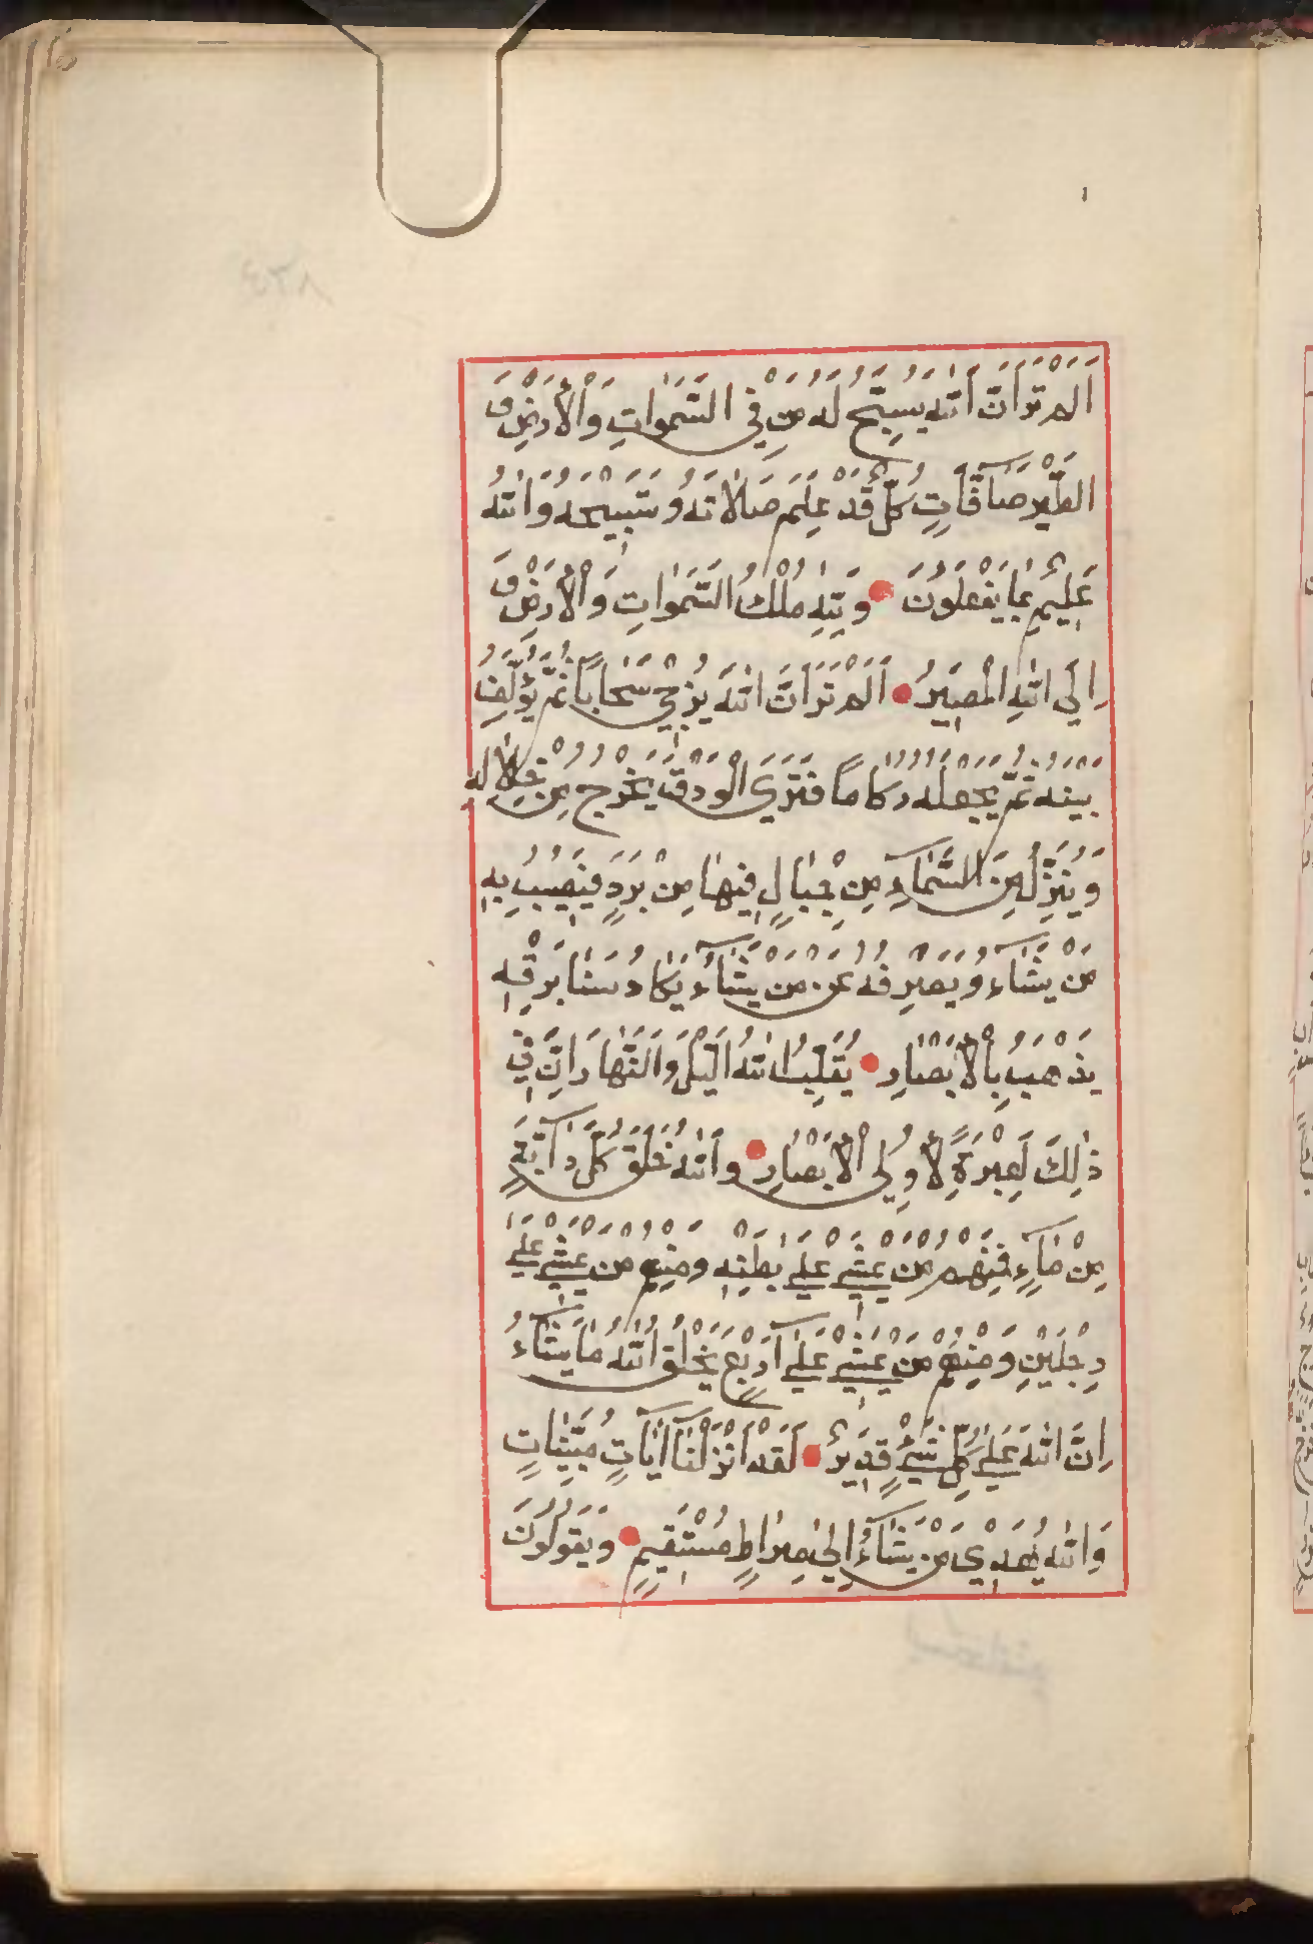 اَلَمْ تَرَ اَنَّ اَللّٰهَ يُسَبِّحُ لَهُ مَنْ فِي السَّمٰوَاتِ وَالْأَرْضِ وَ
الطَّيْرِ صَآفَّاتٍ كُلٌّ قَدْ عَلِمَ صَلاٰتَهُ وَتَسْبِيْحَهُ وَاللّٰهُ
عَلِيْمٌ بِمَا يَفْعَلُوْنَ وَلِلّٰهِ مُلْكُ السَّمٰوَاتِ وَالْأَرْضِ وَ
اِلَي اللّٰهِ الْمَصِيْرُ اَلَمْ تَرَ اَنَّ اللّٰهَ يُزْجِيْ سَحَابًا ثُمَّ يُؤَلِّفُ
بَيْنَهُ ثُمَّ يَجْعَلُهُ رُكَامًا فَتَرَي الْوَدْقَ يَخْرُجُ مِنْ خِلاٰلِهِ
وَيُنَزِّلُ مِنَ السَّمَآءِ مِنْ جِبَالٍ فِيْهَا مِنْ بَرَدٍ فَيُصِيْبُ بِهِ
مَنْ يَشَآءُ وَيَصْرِفُهُ عَنْ مَنْ يَشَآءُ يَكَادُ سَنَا بَرْقِهِ
يَذْهَبُ بِالْأَبْصَارِ يُقَلِّبُ اللّٰهُ اللَّيْلَ وَالنَّهَارَ اِنَّ فِيْ
ذٰلِكَ لَعِبْرَةً لِأُولِي الْأَبْصَارِ وَاَللّٰهُ خَلَقَ كُلَّ دَآبَّةٍ
مِنْ مَآءٍ فَمِنْهُمْ مَنْ يَمْشِيْ عَلٰي بَطْنِهِ وَمِنْهُمْ مَنْ يَمْشِيْ عَلٰي
رِجْلَيْنِ وَمِنْهُمْ مَنْ يَمْشِيْ عَلٰي اَرْبَعٍ يَخْلُقُ اللّٰهُ مَا يَشَآءُ
اِنَّ اللّٰهَ عَلٰي كُلِّ شَيْءٍ قَدِيْرٌ لَقَدْ اَنْزَلْنَآ اٰيَاتٍ مُبَيِّنَاتٍ
وَاللّٰهُ يَهْدِيْ مَنْ يَشَآءُ اِلٰي صِرَاطٍ مُسْتَقِيْمٍ وَيَقُوْلُوْنَ